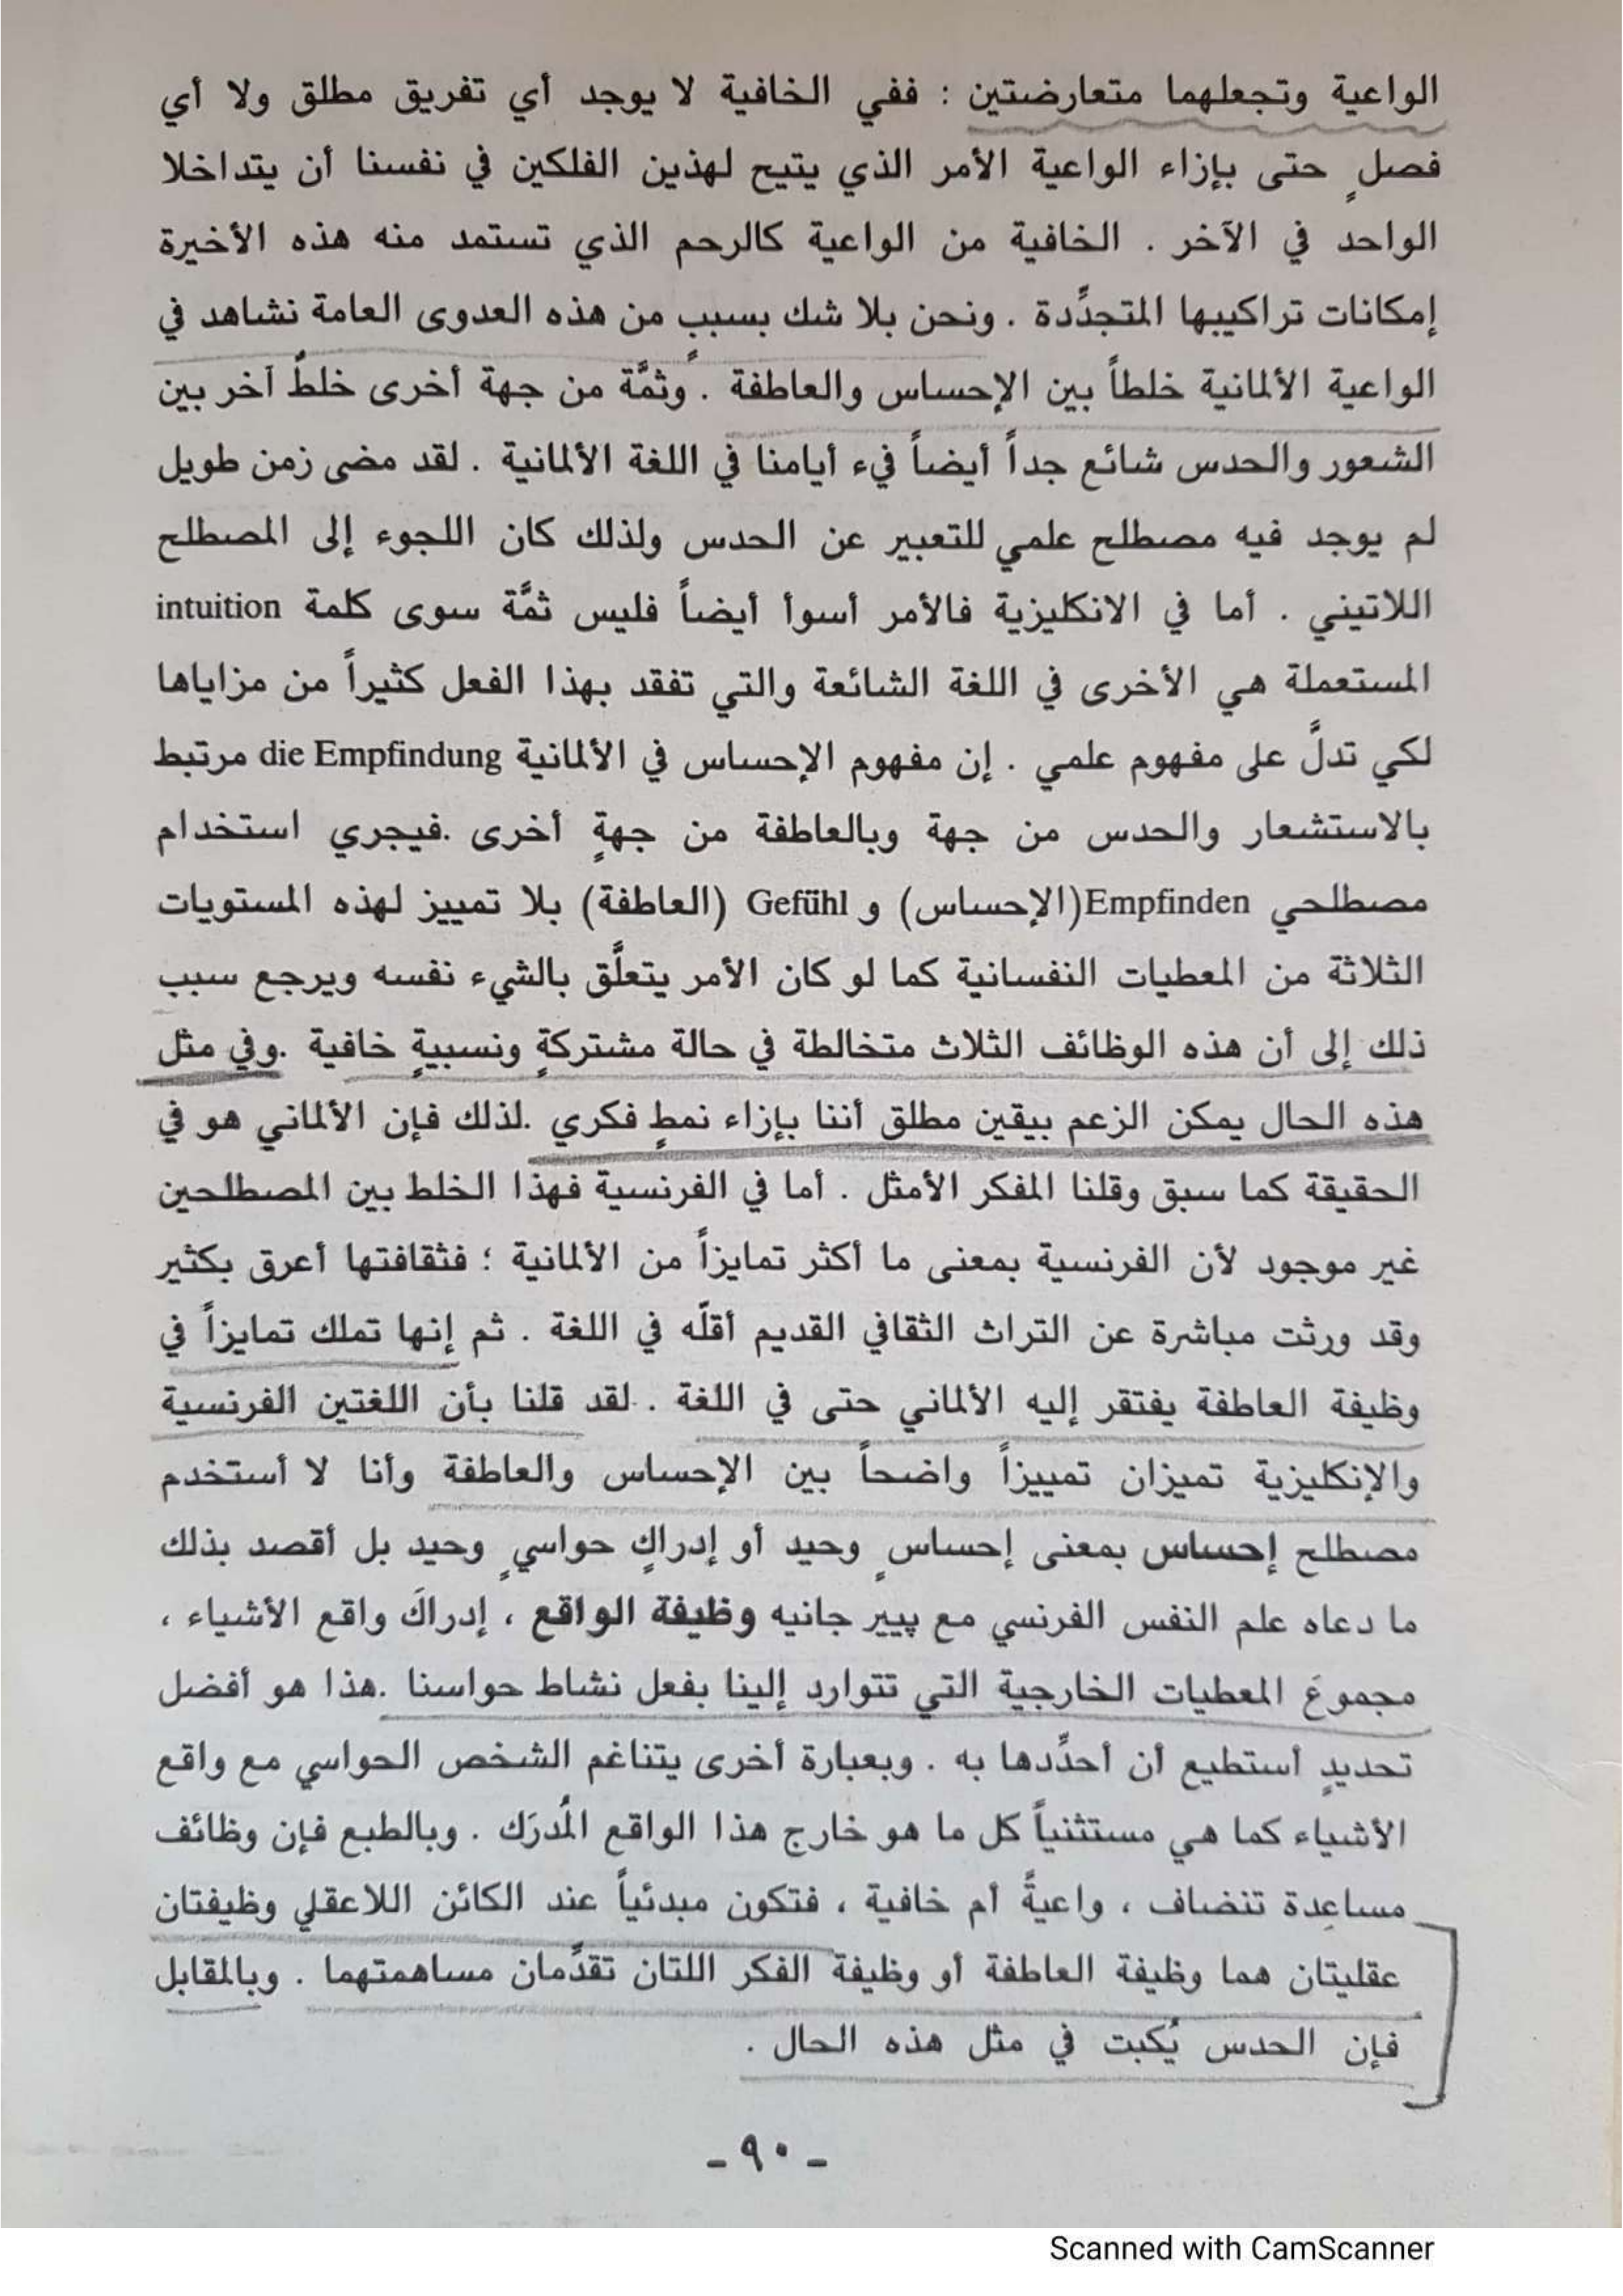 الواعية وتجعلهما متعارضتين : ففي الخافية لا يوجد أي تفريق مطلق ولا أي
فصلٍ حتى بإزاء الواعية الأمر الذي يتيح لهذين الفلكين في نفسنا أن يتداخلا
الواحد في الآخر . الخافية من الواعية كالرحم الذي تستمد منه هذه الأخيرة
إمكانات تراكيبها المتجدِّدة . ونحن بلا شك بسببٍ من هذه العدوى العامة نشاهد في
الواعية الألمانية خلطاً بين الإحساس والعاطفة . وثمَّة من جهة أخرى خلطٌ آخر بين
الشعور والحدس شائع جداً أيضاً فيء أيامنا في اللغة الألمانية . لقد مضى زمن طويل
لم يوجد فيه مصطلح علمي للتعبير عن الحدس ولذلك كان اللجوء إلى المصطلح
اللاتيني . أما في الانكليزية فالأمر أسوأ أيضاً فليس ثمَّة سوى كلمة intuition
المستعملة هي الأخرى في اللغة الشائعة والتي تفقد بهذا الفعل كثيراً من مزاياها
لكي تدلَّ على مفهوم علمي . إن مفهوم الإحساس في الألمانية die Empfindung مرتبط
بالاستشعار والحدس من جهة وبالعاطفة من جهةٍ أخرى .فيجري استخدام
مصطلحي Empfinden(الإحساس) و Gefühl (العاطفة) بلا تمييز لهذه المستويات
الثلاثة من المعطيات النفسانية كما لو كان الأمر يتعلَّق بالشيء نفسه ويرجع سبب
ذلك إلى أن هذه الوظائف الثلاث متخالطة في حالة مشتركةٍ ونسبيةٍ خافية .وفي مثل
هذه الحال يمكن الزعم بيقين مطلق أننا بإزاء نمطٍ فكري .لذلك فإن الألماني هو في
الحقيقة كما سبق وقلنا المفكر الأمثل . أما في الفرنسية فهذا الخلط بين المصطلحين
غير موجود لأن الفرنسية بمعنى ما أكثر تمايزاً من الألمانية ؛ فثقافتها أعرق بكثير
وقد ورثت مباشرة عن التراث الثقافي القديم أقلّه في اللغة . ثم إنها تملك تمايزاً في
وظيفة العاطفة يفتقر إليه الألماني حتى في اللغة . لقد قلنا بأن اللغتين الفرنسية
والإنكليزية تميزان تمييزاً واضحاً بين الإحساس والعاطفة وأنا لا أستخدم
مصطلح إحساس بمعنى إحساسٍ وحيد أو إدراكٍ حواسيٍ وحيد بل أقصد بذلك
ما دعاه علم النفس الفرنسي مع پيير جانيه وظيفة الواقع ، إدراكَ واقع الأشياء ،
مجموعَ المعطيات الخارجية التي تتوارد إلينا بفعل نشاط حواسنا .هذا هو أفضل
تحديدٍ أستطيع أن أحدِّدها به . وبعبارة أخرى يتناغم الشخص الحواسي مع واقع
الأشياء كما هي مستثنياً كل ما هو خارج هذا الواقع المُدرَك . وبالطبع فإن وظائف
مساعِدة تنضاف ، واعيةً أم خافية ، فتكون مبدئياً عند الكائن اللاعقلي وظيفتان
عقليتان هما وظيفة العاطفة أو وظيفة الفكر اللتان تقدِّمان مساهمتهما . وبالمقابل
فإن الحدس يُكبت في مثل هذه الحال .
- ٩٠ -
Scanned with CamScanner